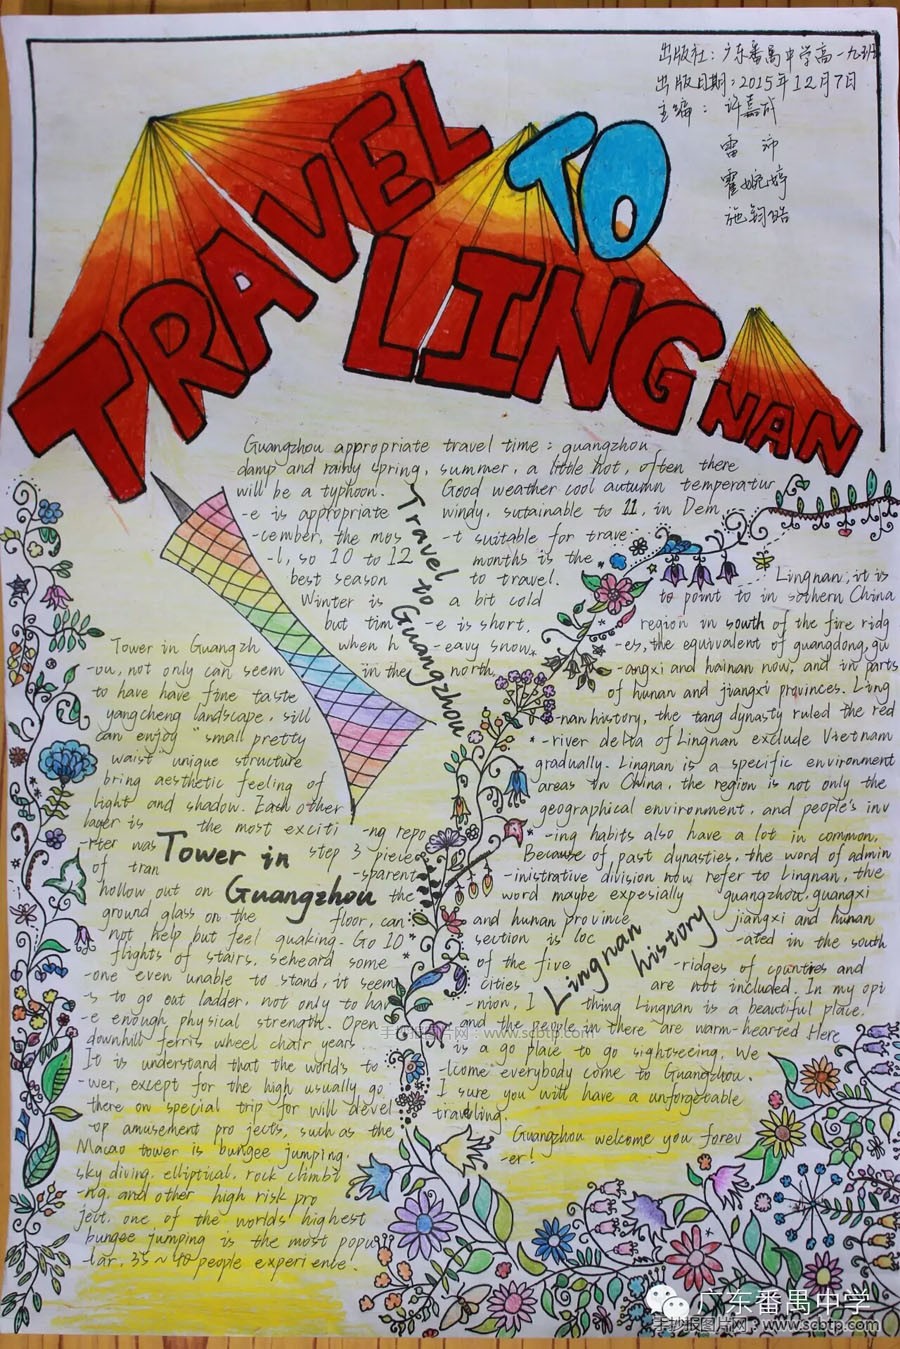 出版社：广东番禺中学高一九班
出版日期：2015年12月7日
主编：许嘉成
雷 沛
霍婉婷
施钧皓
TRAVEL
TO
LINGNAN
Guangzhou appropriate travel time : guangzhou
damp and rainy spring, summer, a little hot, often there
will be a typhoon. Good weather cool autumn temperatur
-e is appropriate windy, sutainable to 11, in Dem
-cember, the mos -t suitable for trave
-l, so 10 to 12 months is the
best season to travel.
Winter is a bit cold
but tim -e is short,
when h -eavy snow
in the north
Travel to Guangzhou
Tower in Guangzh
-ou, not only can seem
to have have fine taste
yangcheng landscape, sill
can enjoy "small pretty
waist unique structure
bring aesthetic feeling of
light and shadow. Each other
lager is the most exciti -ng repo
-rter was step 3 piece
of tran -sparent
hollow out on the
ground glass on the floor, can
not help but feel quaking. Go 10
flights of stairs, seheard some
-one even unable to stand, it seem
-s to go out ladder, not only to hav
-e enough physical strength. Open
downhill ferris wheel chair years
It is understand that the worlds to
-wer, except for the high usually go
there on special trip for will devel
-op amusement pro jects, such as the
Macao tower is bungee jumping.
sky diving, elliptical, rock climbi
-ng, and other high risk pro
ject, one of the worlds highest
bungee jumping is the most popu
-lar, 35~40 people experience.
Tower in
Guangzhou
Lingnan, it is
to point to in sothern China
region in south of the fire ridg
-es, the equivalent of guangdong, gu
-angxi and hainan now, and in parts
of hunan and jiangxi provinces. Ling
-nan history, the tang dynasty ruled the red
-river delta of Lingnan exclude Vietnam
gradually. Lingnan is a specific environment
areas in China, the region is not only the
geographical environment, and people's inv
-ing habits also have a lot in common,
Because of past dynasties, the word of admin
-inistrative division now refer to Lingnan, the
word maybe expesially guangzhou, guangxi
and hunan province, jiangxi and hunan
section is loc -ated in the south
of the five -ridges of countries and
cities are not included. In my opi
-nion, I thing Lingnan is a beautiful place.
and the people in there are warm-hearted Here
is a go place to go sightseeing. We
-lcome everybody come to Guangzhou.
I sure you will have a unforgetable
traveling.
Guangzhou welcome you forev
-er!
Lingnan
history
手抄报图片网：www.scbtp.com
广东番禺中学
手抄报图片网：www.scbtp.com